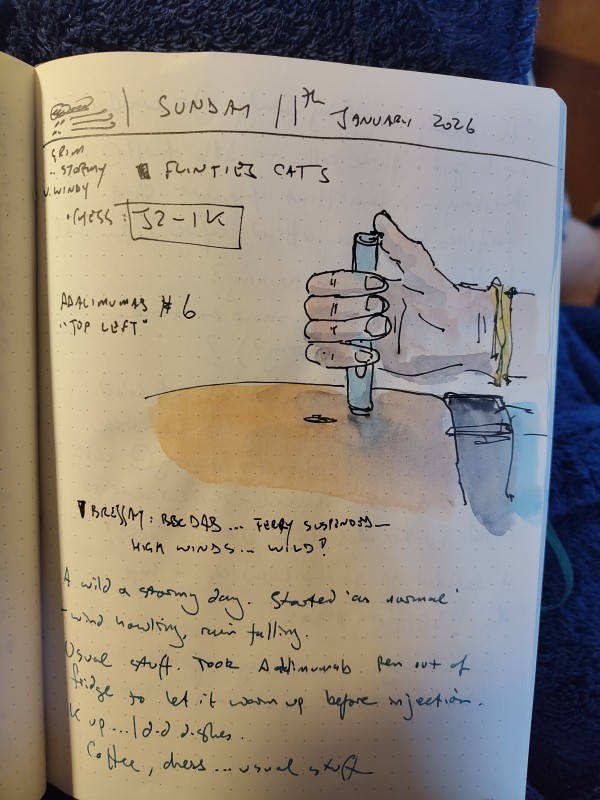 SUNDAY 11th JANUARY 2026
GRIM
.. STORMY
V. WINDY
FLINTIES CATS
CHESS: J2-1K
ADALIMUMAB #6
"TOP LEFT"
BRESSAY: BBC DAB ... FERRY SUSPENDED_
HIGH WINDS... WILD!
A wild a stormy day. Started 'as normal'
- wind howling, rain falling.
Usual stuff. Took Adalimumab Pen out of
fridge to let it warm up before injection.
K up... I did dishes.
Coffee, chess ... usual stuff